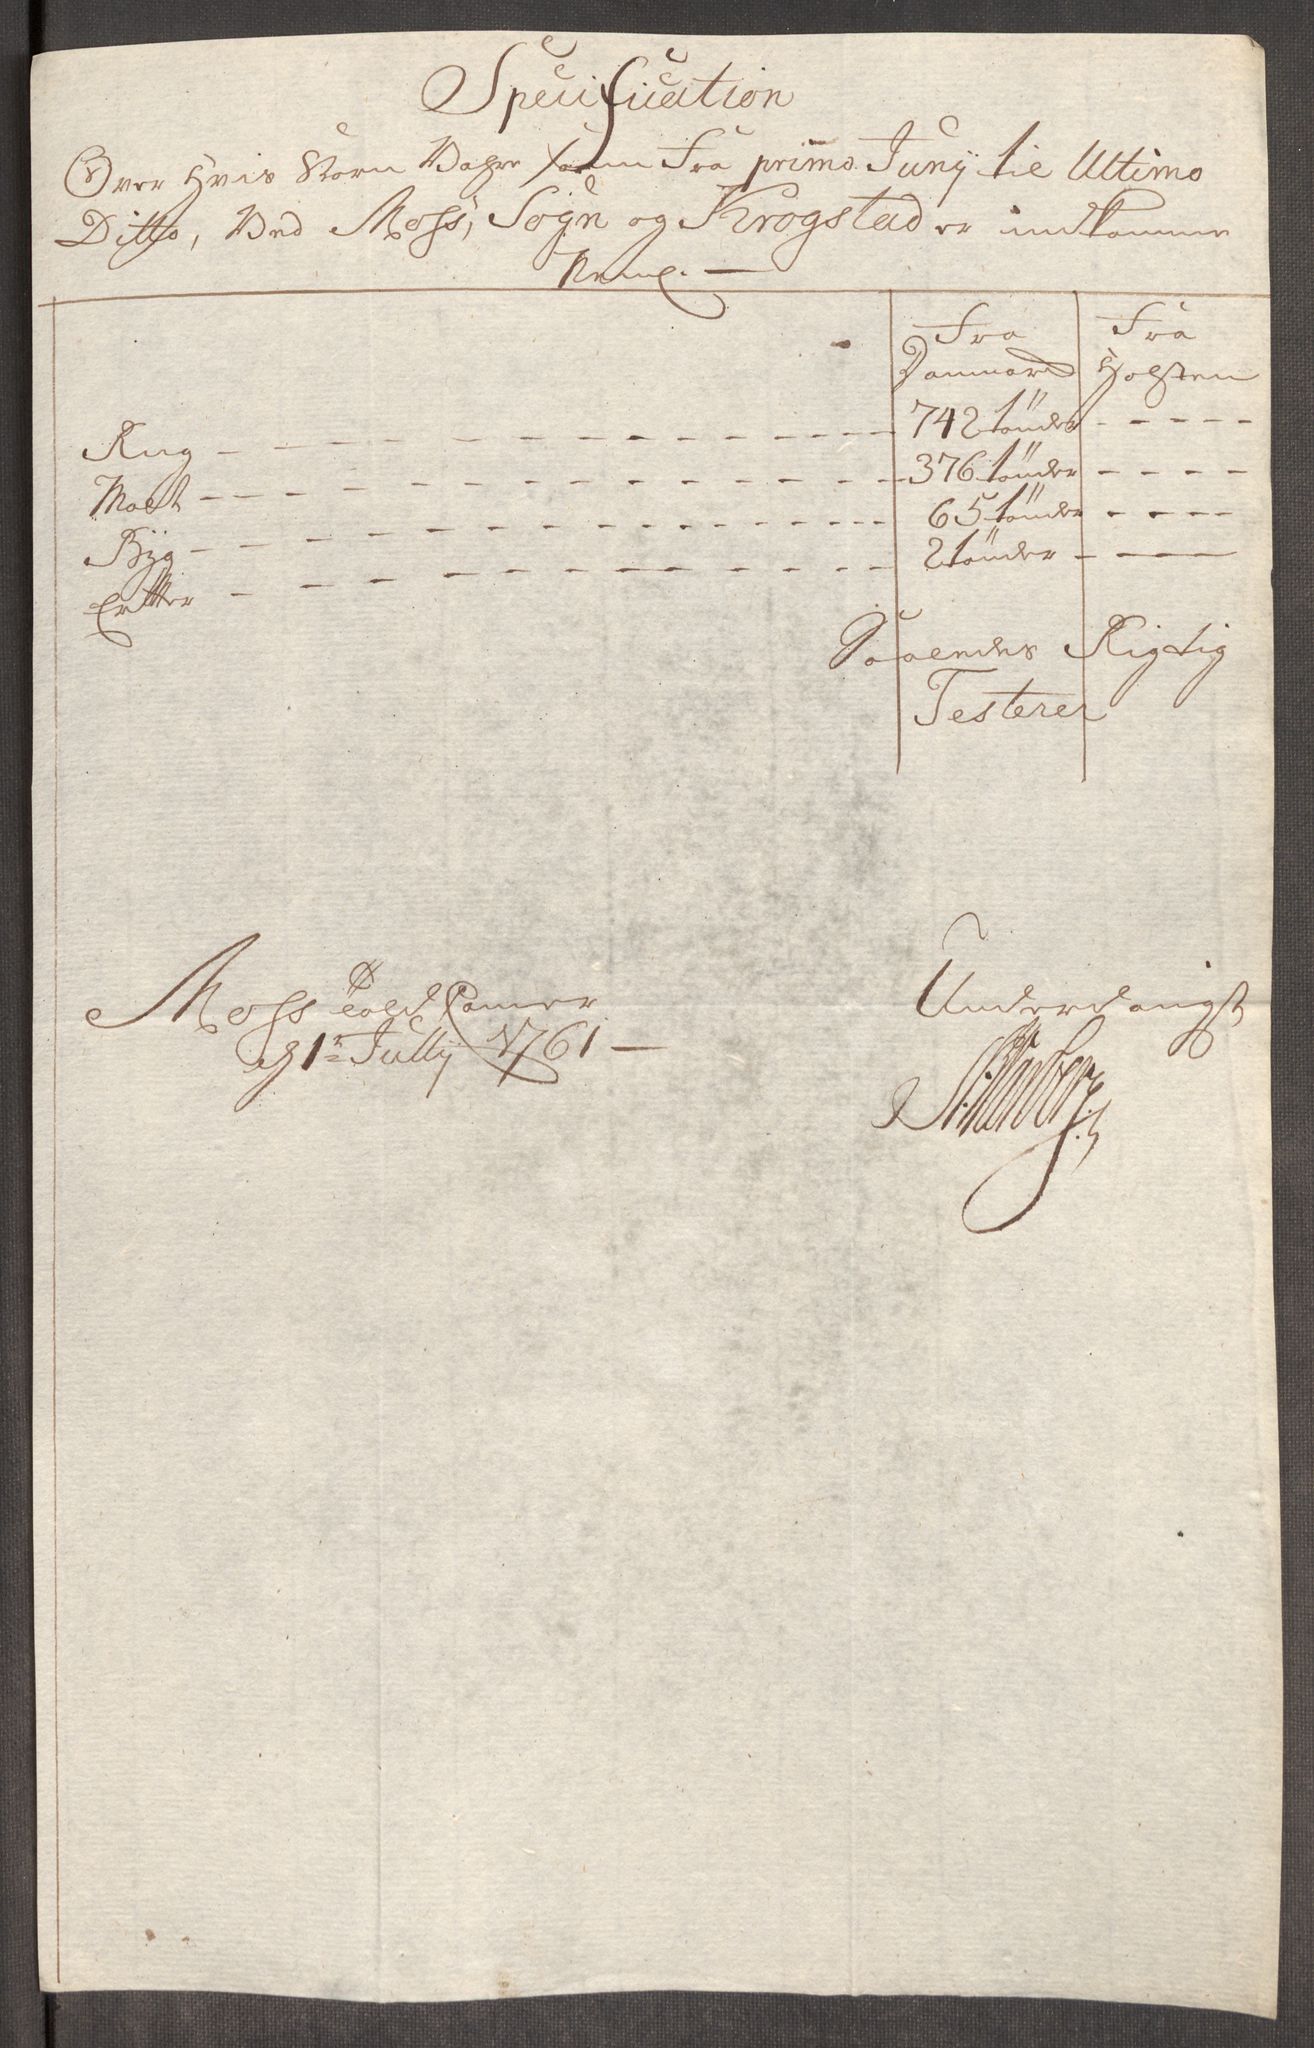 Specification
Over Hvis Korn Vahre som Fra primo Junij til Ultimo
Ditto, Ved Moss, Sogn og Krogstad er indkomme
Neml. —
Fra Danmark Fra Holsten
Rug - - - 742 tönder - - - - -
Malt - - - 376 tönder - - - -
Byg - - - 65 tönder - - - -
Ertter - - - 2 tönder - - -
Saaledes Rigtig
Testerer
Moss Told Camer
d 1r Jully 1761 —
Underdanigst